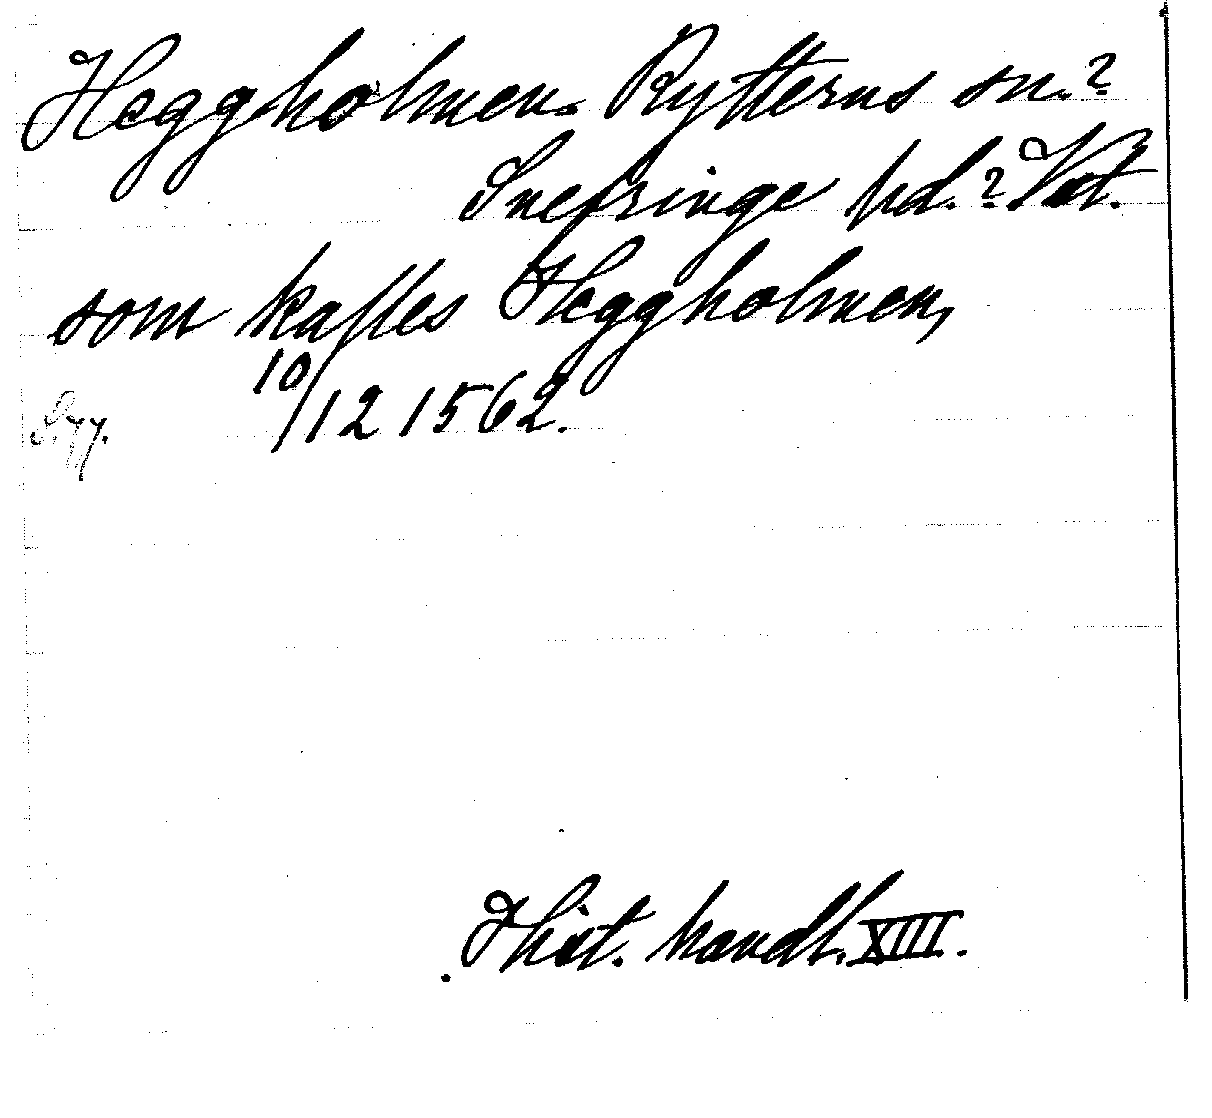 Heggholmen. Rytterns sn.?
Snefringe hd.? Vst.
som kalles Heggholmen,
10/12 1562.
S. 77.
Hist. handl. XIII.